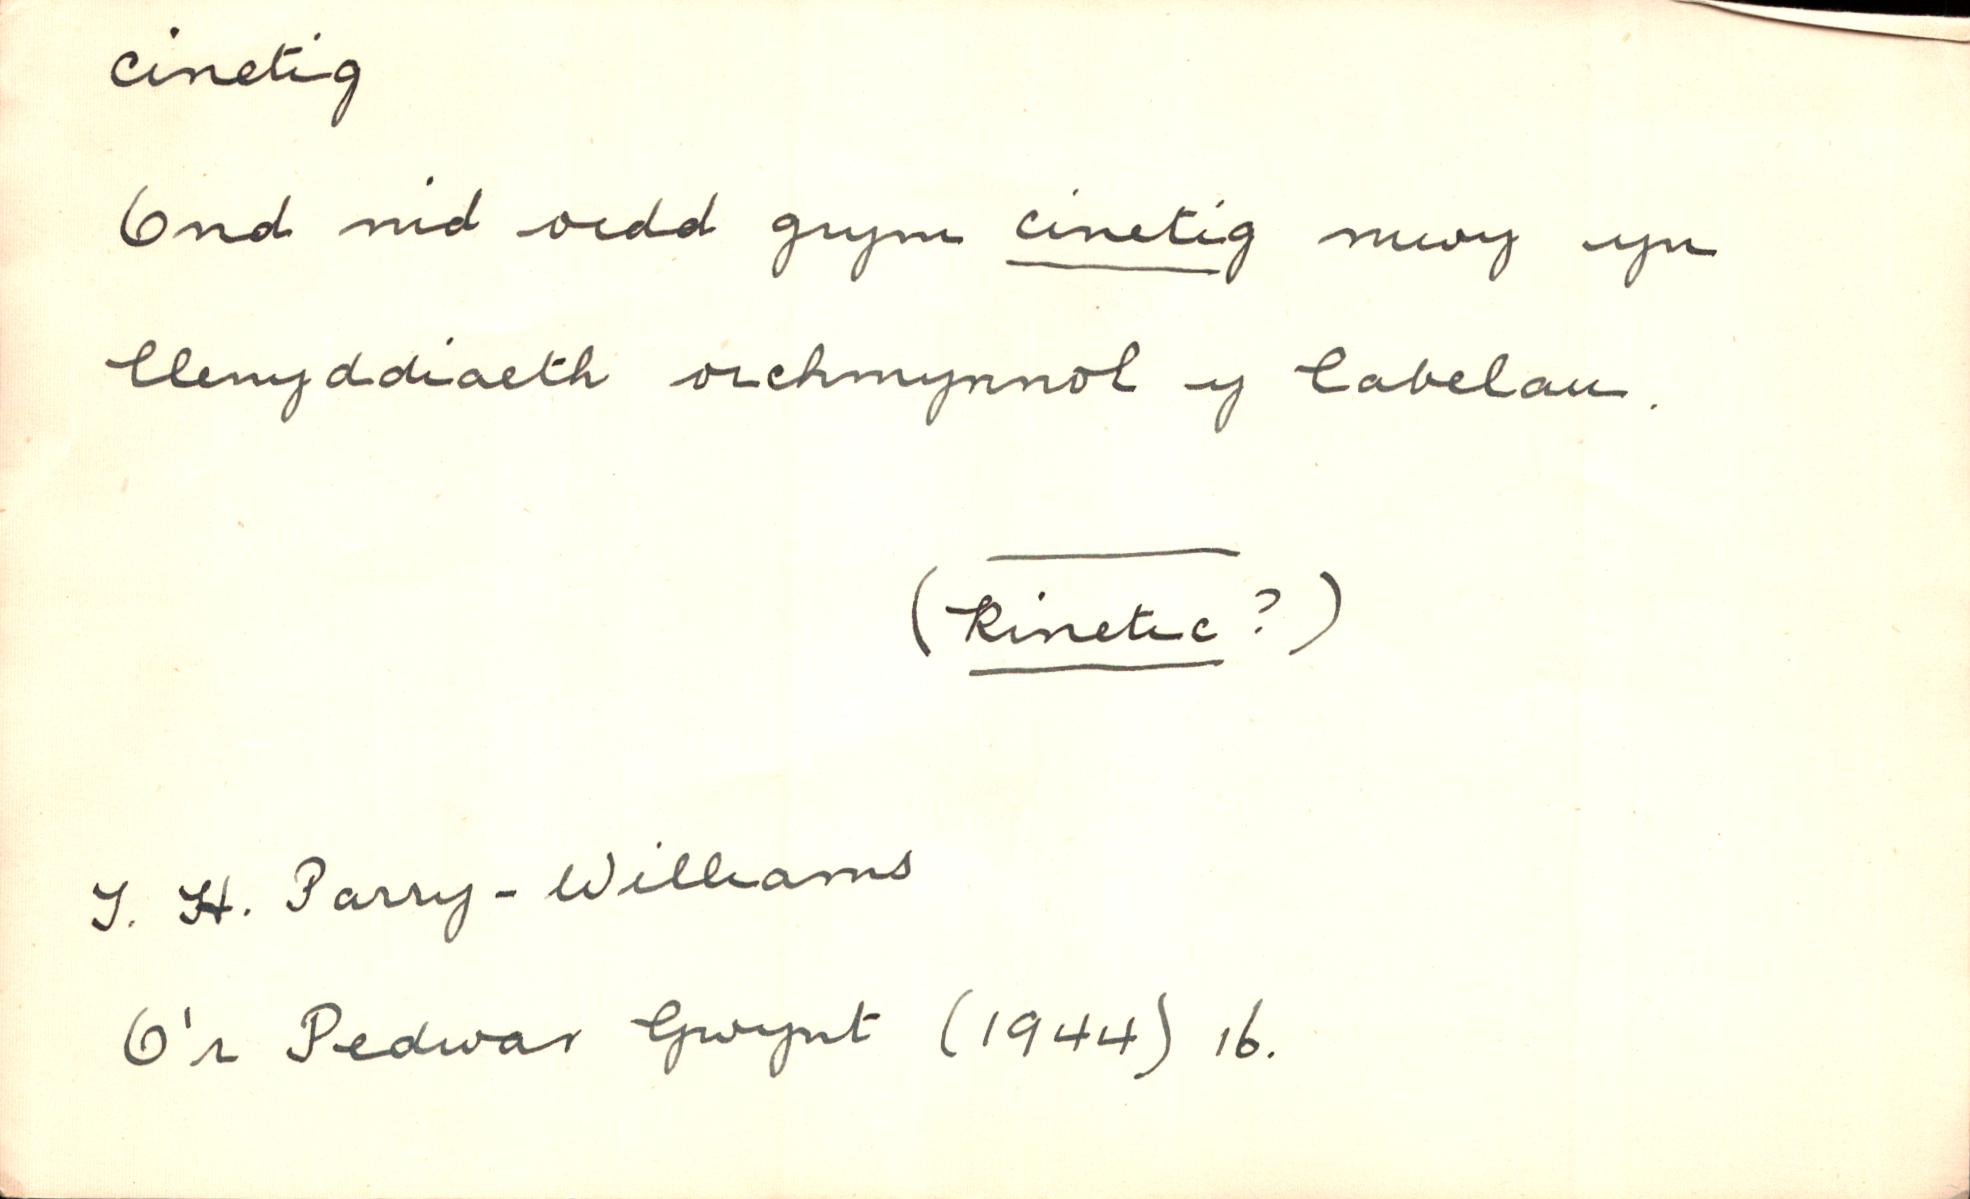 cinetig
Ond nid oedd grym cinetig mwy yn
llenyddiaeth orchmynnol y labelau.
(kinetic?)
T. H. Parry-Williams
O'r Pedwar Gwynt (1944) 16.